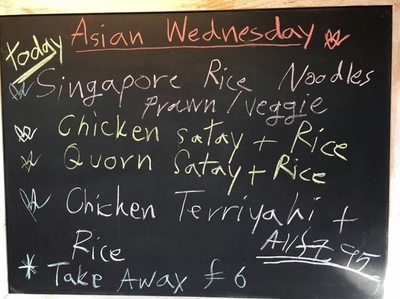 Today
Asian Wednesday
Singapore Rice Noodles
Prawn/veggie
Chicken satay + Rice
Quorn Satay + Rice
Chicken Terriyahi +
Rice
All £7.95
Take Away £6